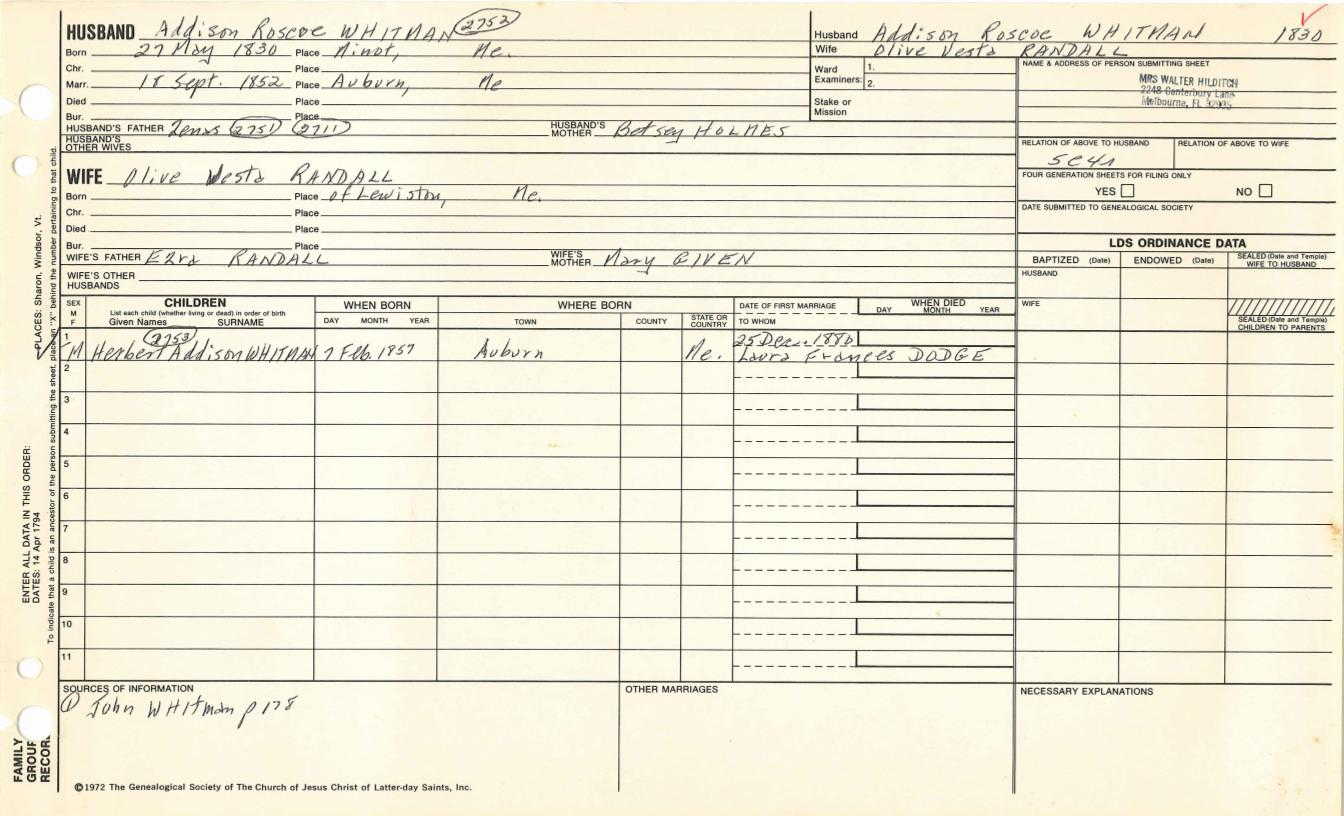 HUSBAND Addison Roscoe WHITMAN 2752
Born 27 May 1830 Place Minot, Me.
Chr. Place
Marr. 18 Sept. 1852 Place Auburn, Me
Died Place
Bur. Place
HUSBAND'S FATHER Zenas 2751 2711 HUSBAND'S MOTHER Betsey HOLMES
HUSBAND'S OTHER WIVES
WIFE Olive Vesta RANDALL
Born Place of Lewiston, Me.
Chr. Place
Died Place
Bur. Place
WIFE'S FATHER Ezra RANDALL WIFE'S MOTHER Mary GIVEN
WIFE'S OTHER HUSBANDS
Husband Addison Roscoe WHITMAN 1830
Wife Olive Vesta RANDALL
Ward Examiners: 1.
2.
Stake or Mission
NAME & ADDRESS OF PERSON SUBMITTING SHEET
MRS WALTER HILDITCH
2248 Canterbury Lane
Melbourne, FL 32935
RELATION OF ABOVE TO HUSBAND RELATION OF ABOVE TO WIFE
5C4r
FOUR GENERATION SHEETS FOR FILING ONLY
YES NO
DATE SUBMITTED TO GENEALOGICAL SOCIETY
LDS ORDINANCE DATA
BAPTIZED (Date) ENDOWED (Date) SEALED (Date and Temple) WIFE TO HUSBAND
HUSBAND
WIFE
SEALED (Date and Temple) CHILDREN TO PARENTS
SEX M F CHILDREN WHEN BORN WHERE BORN DATE OF FIRST MARRIAGE WHEN DIED
List each child (whether living or dead) in order of birth
Given Names SURNAME DAY MONTH YEAR TOWN COUNTY STATE OR COUNTRY TO WHOM DAY MONTH YEAR
1 2753 25 Dec. 1880
M Herbert Addison WHITMAN 7 Feb. 1957 Auburn Me. Laura Frances DODGE
2
3
4
5
6
7
8
9
10
11
SOURCES OF INFORMATION OTHER MARRIAGES NECESSARY EXPLANATIONS
① John WHITman p 178
©1972 The Genealogical Society of The Church of Jesus Christ of Latter-day Saints, Inc.
FAMILY GROUP RECORD
ENTER ALL DATA IN THIS ORDER:
DATES: 14 Apr 1794 PLACES: Sharon, Windsor, Vt.
To indicate that a child is an ancestor of the person submitting the sheet, place an "X" behind the number pertaining to that child.